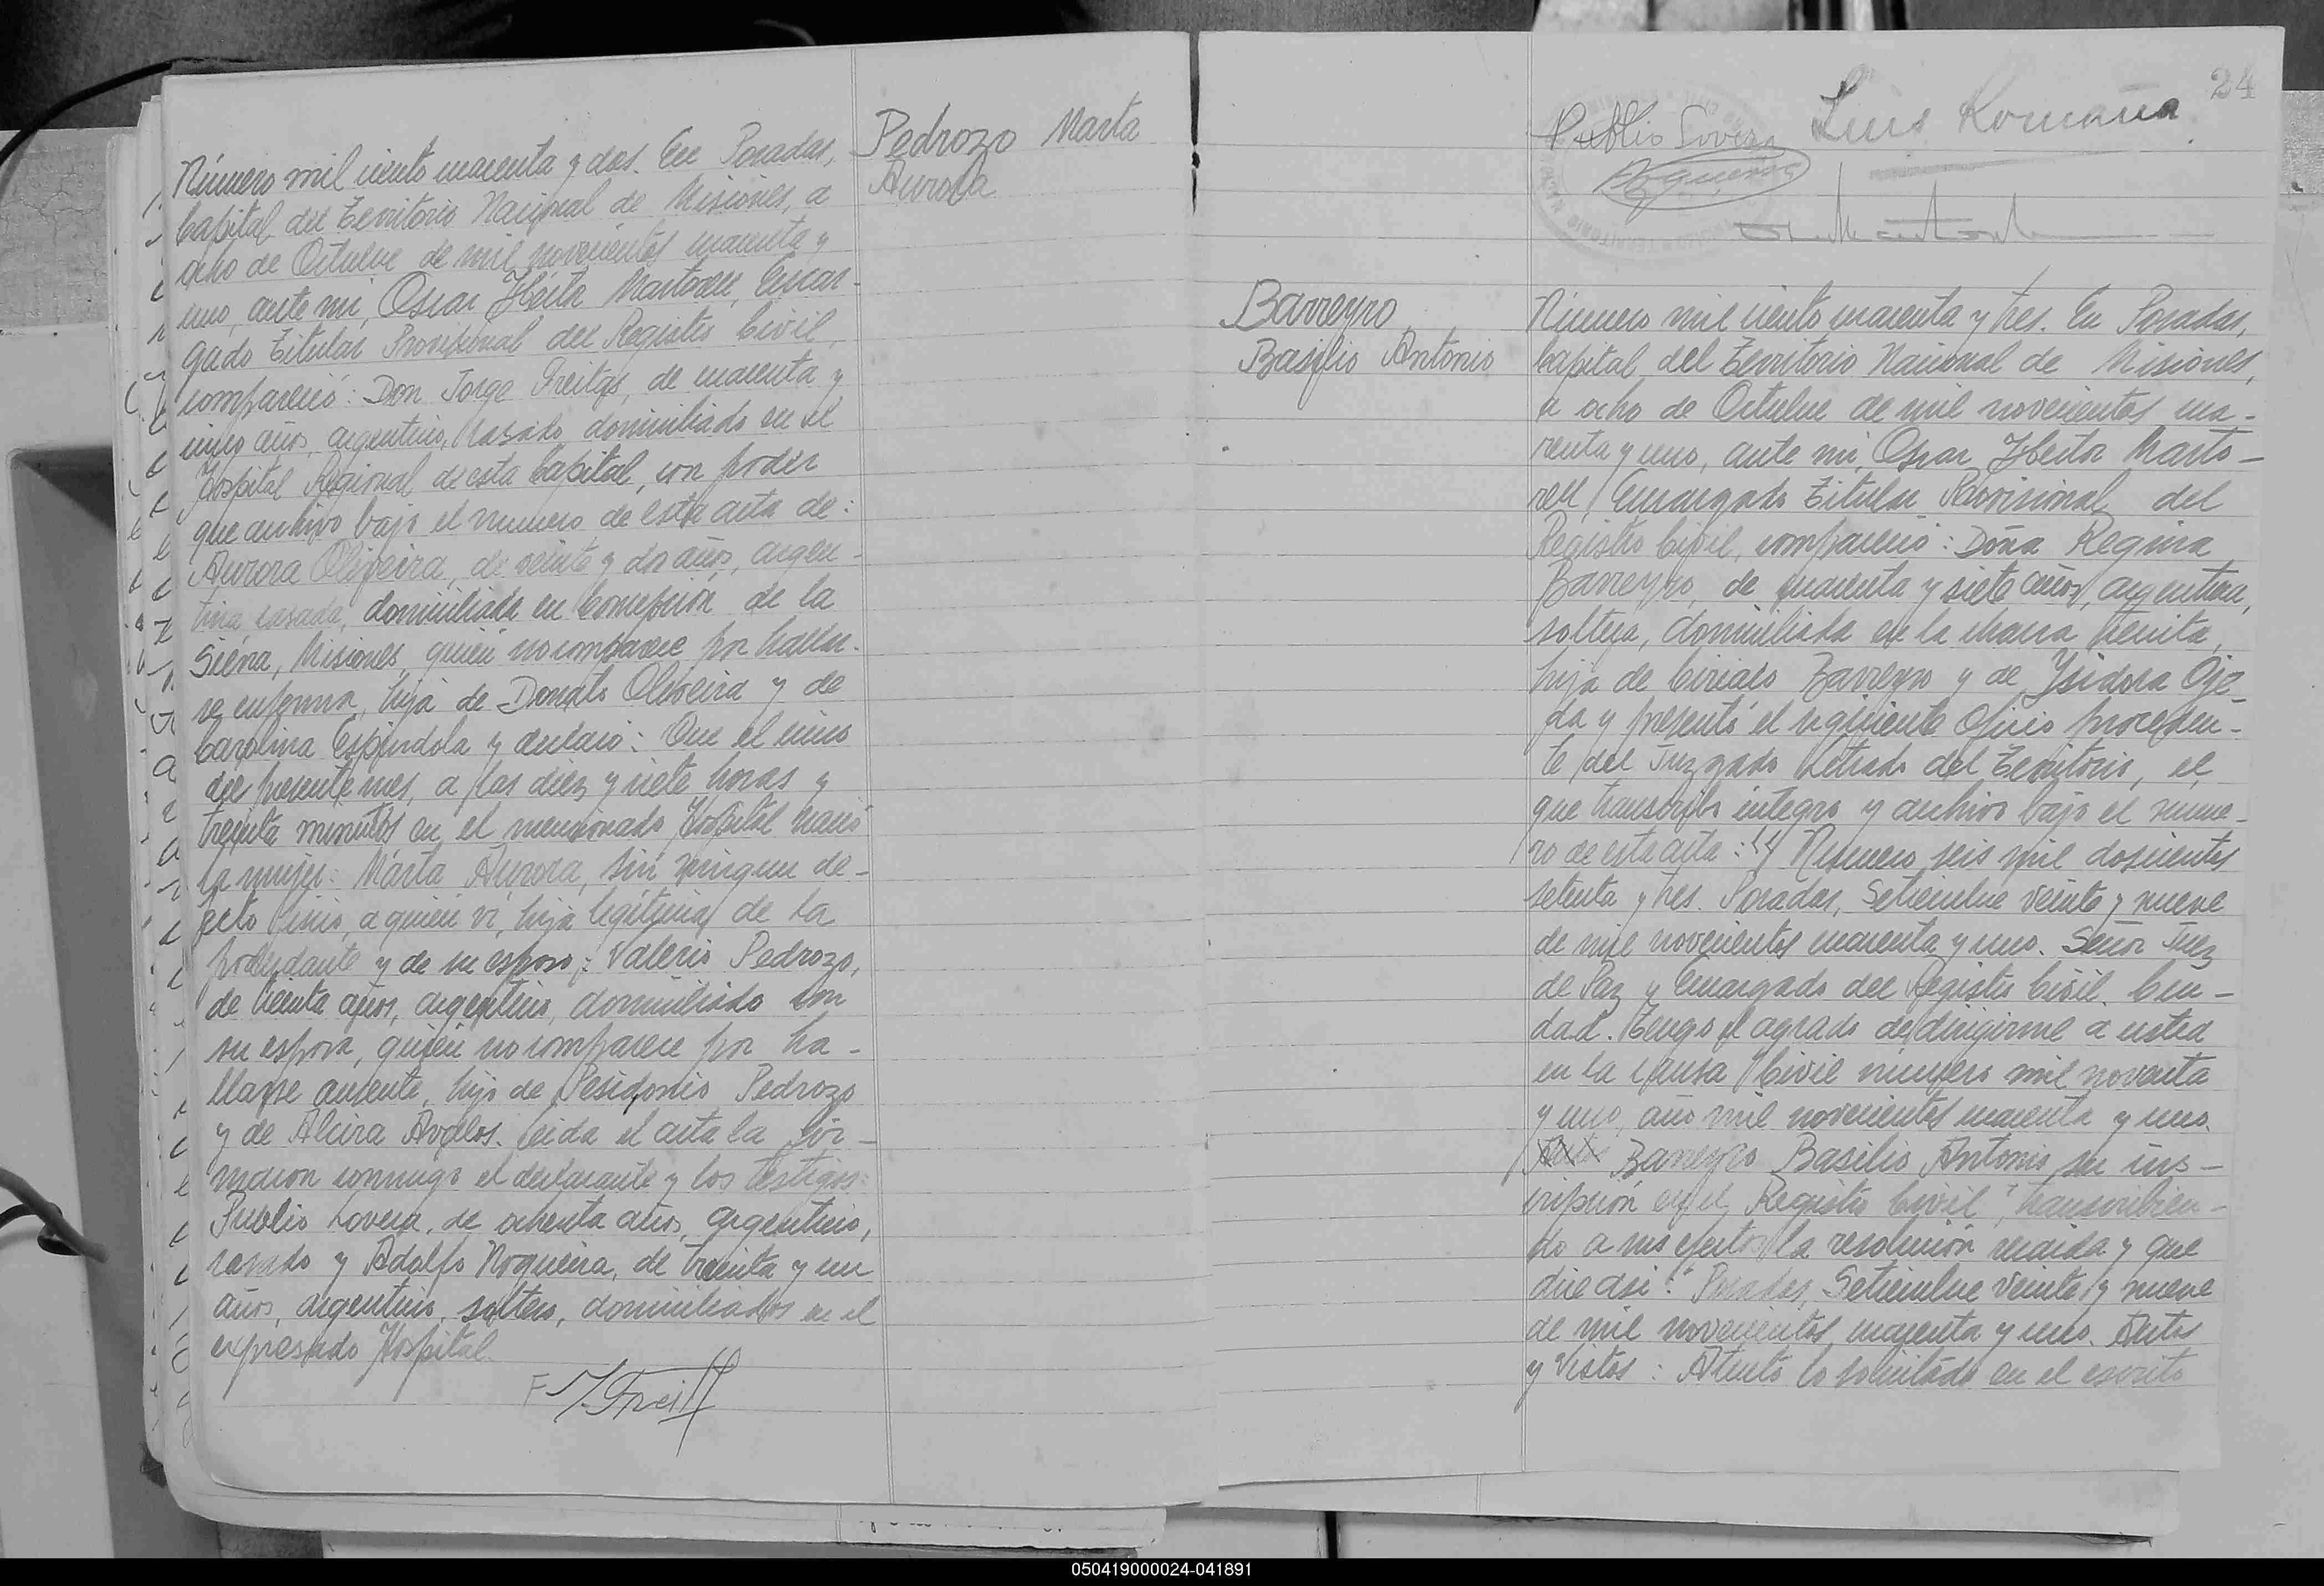 Pedrozo Marta
Aurora
Número mil ciento cuarenta y dos. En Posadas,
Capital del Territorio Nacional de Misiones, a
ocho de Octubre de mil novecientos cuarenta y
uno, ante mi, Oscar Héctor Martorell, Encar-
gado Titular Provisional del Registro Civil,
compareció: Don Jorge Freitas, de cuarenta y
cinco años, argentino, casado, domiciliado en el
Hospital Regional de esta Capital, con poder
que archivo bajo el numero de esta acta de:
Aurora Oliveira, de veinte y dos años, argen-
tina, casada, domiciliada en Concepción de la
Sierra, Misiones, quién no comparece por hallar-
se enferma, hija de Donato Oliveira y de
Carolina Espindola y declaró: Que el cinco
del presente mes, a las diez y siete horas y
treinta minutos en el mencionado Hospital nació
la mujer: Marta Aurora, sin ningun de-
fecto físico, a quien ví, hija legítima de la
poderdante y de su esposo: Valerio Pedrozo,
de treinta años, argentino, domiciliado con
su esposa, quién no comparece por ha-
llarse ausente, hijo de Pesidonio Pedrozo
y de Alcira Avalos. Leida el acta la fir-
maron conmigo el declarante y los testigos:
Publio Lovera, de ochenta años, argentino,
casado y Adolfo Nogueira, de treinta y un
años, argentino, soltero, domiciliados en el
expresado Hospital.
24
Publio Lovera Luis Romaña
Barreyro
Basilio Antonio
Número mil ciento cuarenta y tres. En Posadas,
Capital del Territorio Nacional de Misiones,
a ocho de Octubre de mil novecientos cua-
renta y uno, ante mi, Oscar Héctor Marto-
rell, Encargado Titular Provisional del
Registro Civil, compareció: Doña Regina
Barreyro, de cuarenta y siete años, argentina,
soltera, domiciliada en la chacra treinta,
hija de Ciriaco Barreyro y de Ysidora Oje-
da y presentó el siguiente Oficio proceden-
te del Juzgado Letrado del Territorio, el
que transcribo integro y archivo bajo el nume-
ro de esta acta: "Número seis mil doscientos
setenta y tres. Posadas, Setiembre veinte y nueve
de mil novecientos cuarenta y uno. Señor Juez
de Paz y Encargado del Registro Civil. Ciu-
dad. Tengo el agrado de dirigirme a usted
en la causa Civil número mil noventa
y uno, año mil novecientos cuarenta y uno.
Barreyro Basilio Antonio su ins-
cripción en el Registro Civil", transcribien-
do a sus efectos la resolución recaida y que
dice asi: "Posadas, Setiembre veinte y nueve
de mil novecientos cuarenta y uno. Autos
y Vistos: Atento lo solicitado en el escrito
050419000024-041891